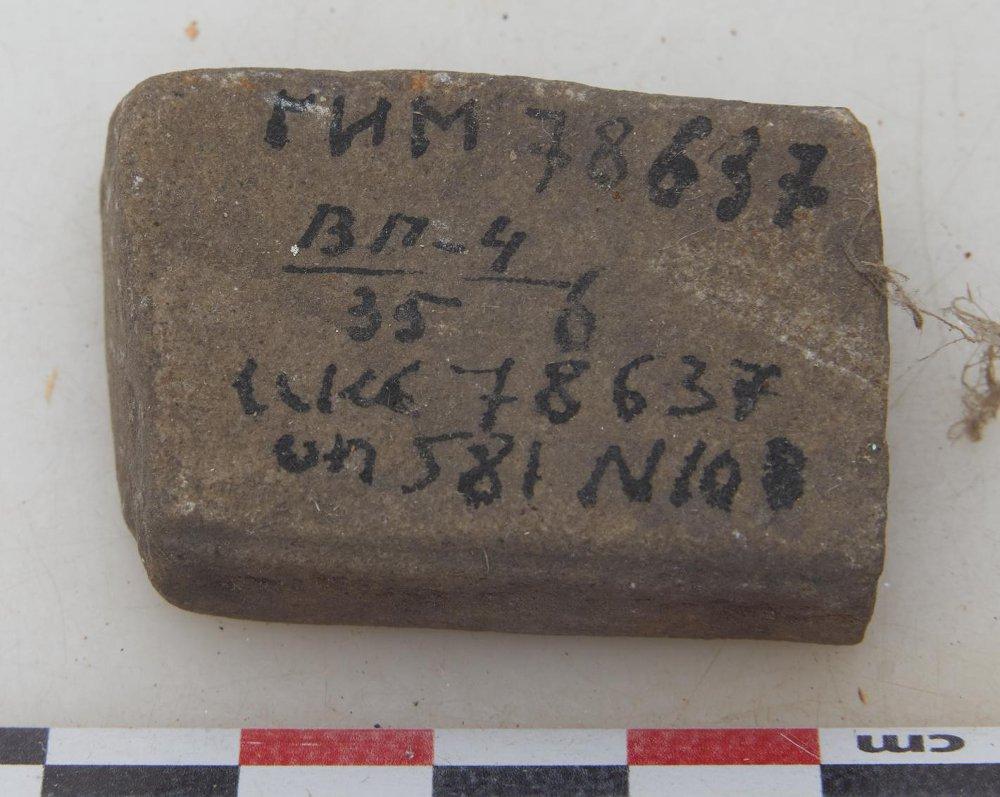 ГИМ 78637
ВП-4
35 б
инв 78637
оп 581 N 108
cm